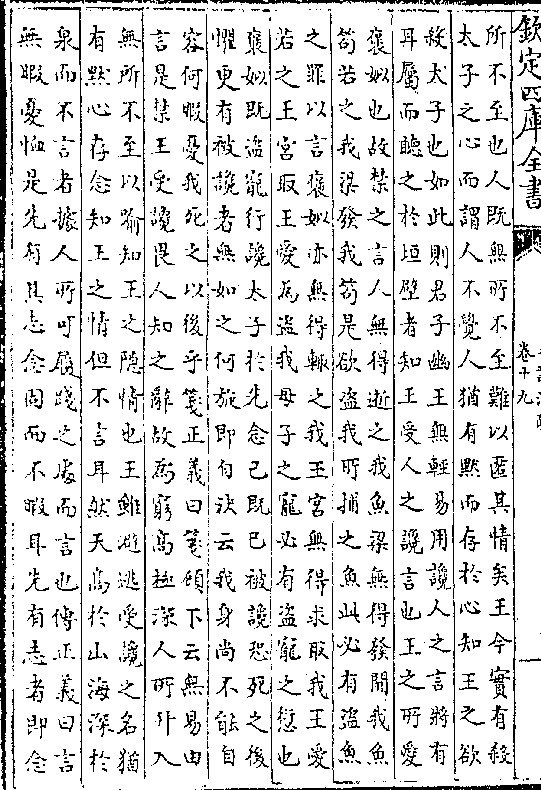 欽定四庫全書
卷十九
所不至也人既無所不至難以匿其情矣王今實有殺
太子之心而謂人不覺人猶有默而存於心知王之欲
殺太子也如此則君子幽王無輕易用讒人之言將有
耳屬而聽之於垣壁者知王受人之讒言也王之所愛
褒姒也故禁之言人無得逝之我魚梁無得發開我魚
笱若之我梁發我笱是欲盜我所捕之魚此必有盜魚
之罪以言褒姒亦無得輙之我王宮無得求取我王愛
若之王宮取王愛為盜我母子之寵必有盜寵之愆也
褒姒既盜寵行讒太子於先念己既已被讒恐死之後
懼更有被讒者無如之何旋即自決云我身尚不能自
容何暇憂我死之以後乎箋正義曰箋傾下云無易由
言是禁王受讒畏人知之辭故為窮髙極深人所升入
無所不至以喻知王之隱情也王雖避逃受讒之名猶
有默心存念知王之情但不言耳然天髙於山海深於
泉而不言者據人所可履踐之處而言也傳正義曰言
無暇憂恤是先有其志念固而不暇耳先有志者即念